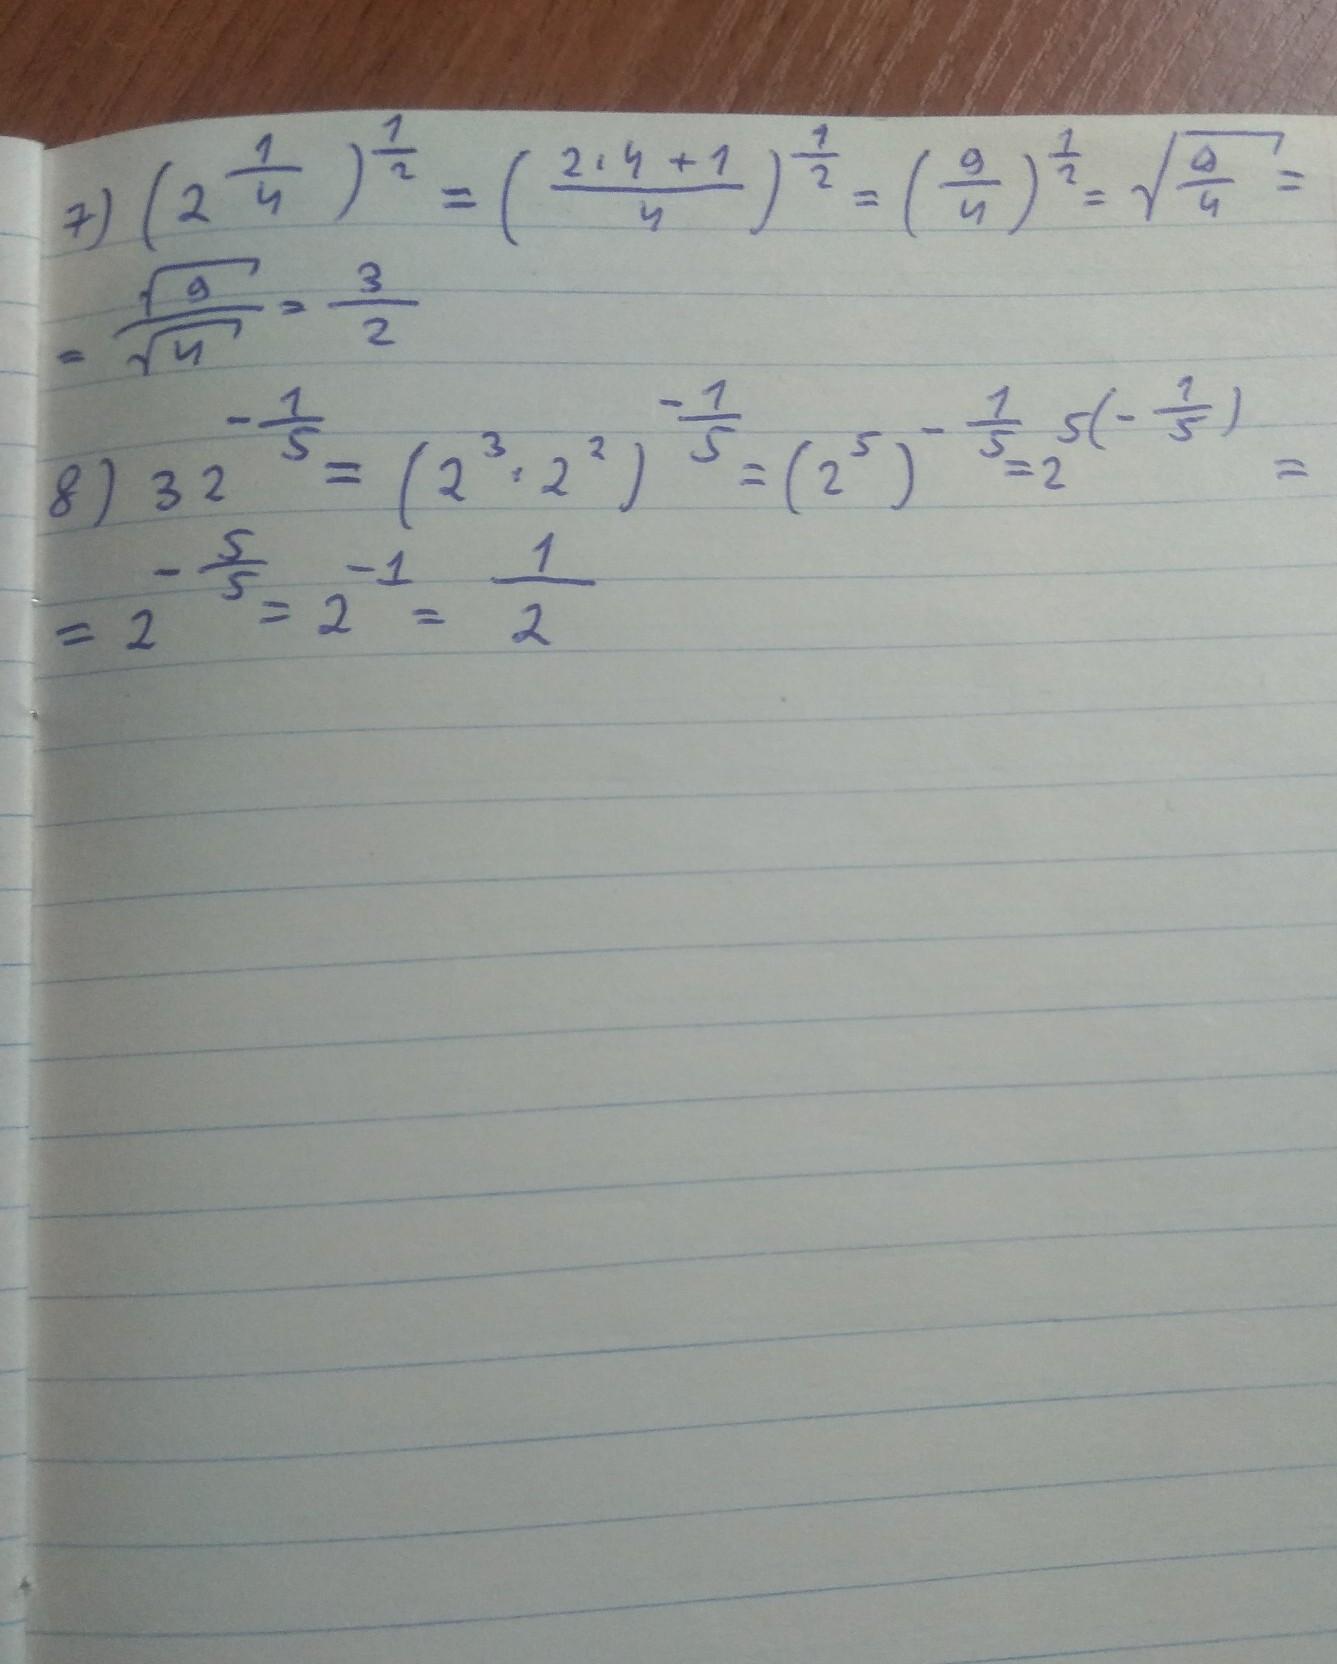 7) (2 1/4)^(1/2) = ((2·4+1)/4)^(1/2) = (9/4)^(1/2) = √(9/4) =
= √9/√4 = 3/2
8) 32^(-1/5) = (2^3·2^2)^(-1/5) = (2^5)^(-1/5) = 2^(5(-1/5)) =
= 2^(-5/5) = 2^(-1) = 1/2